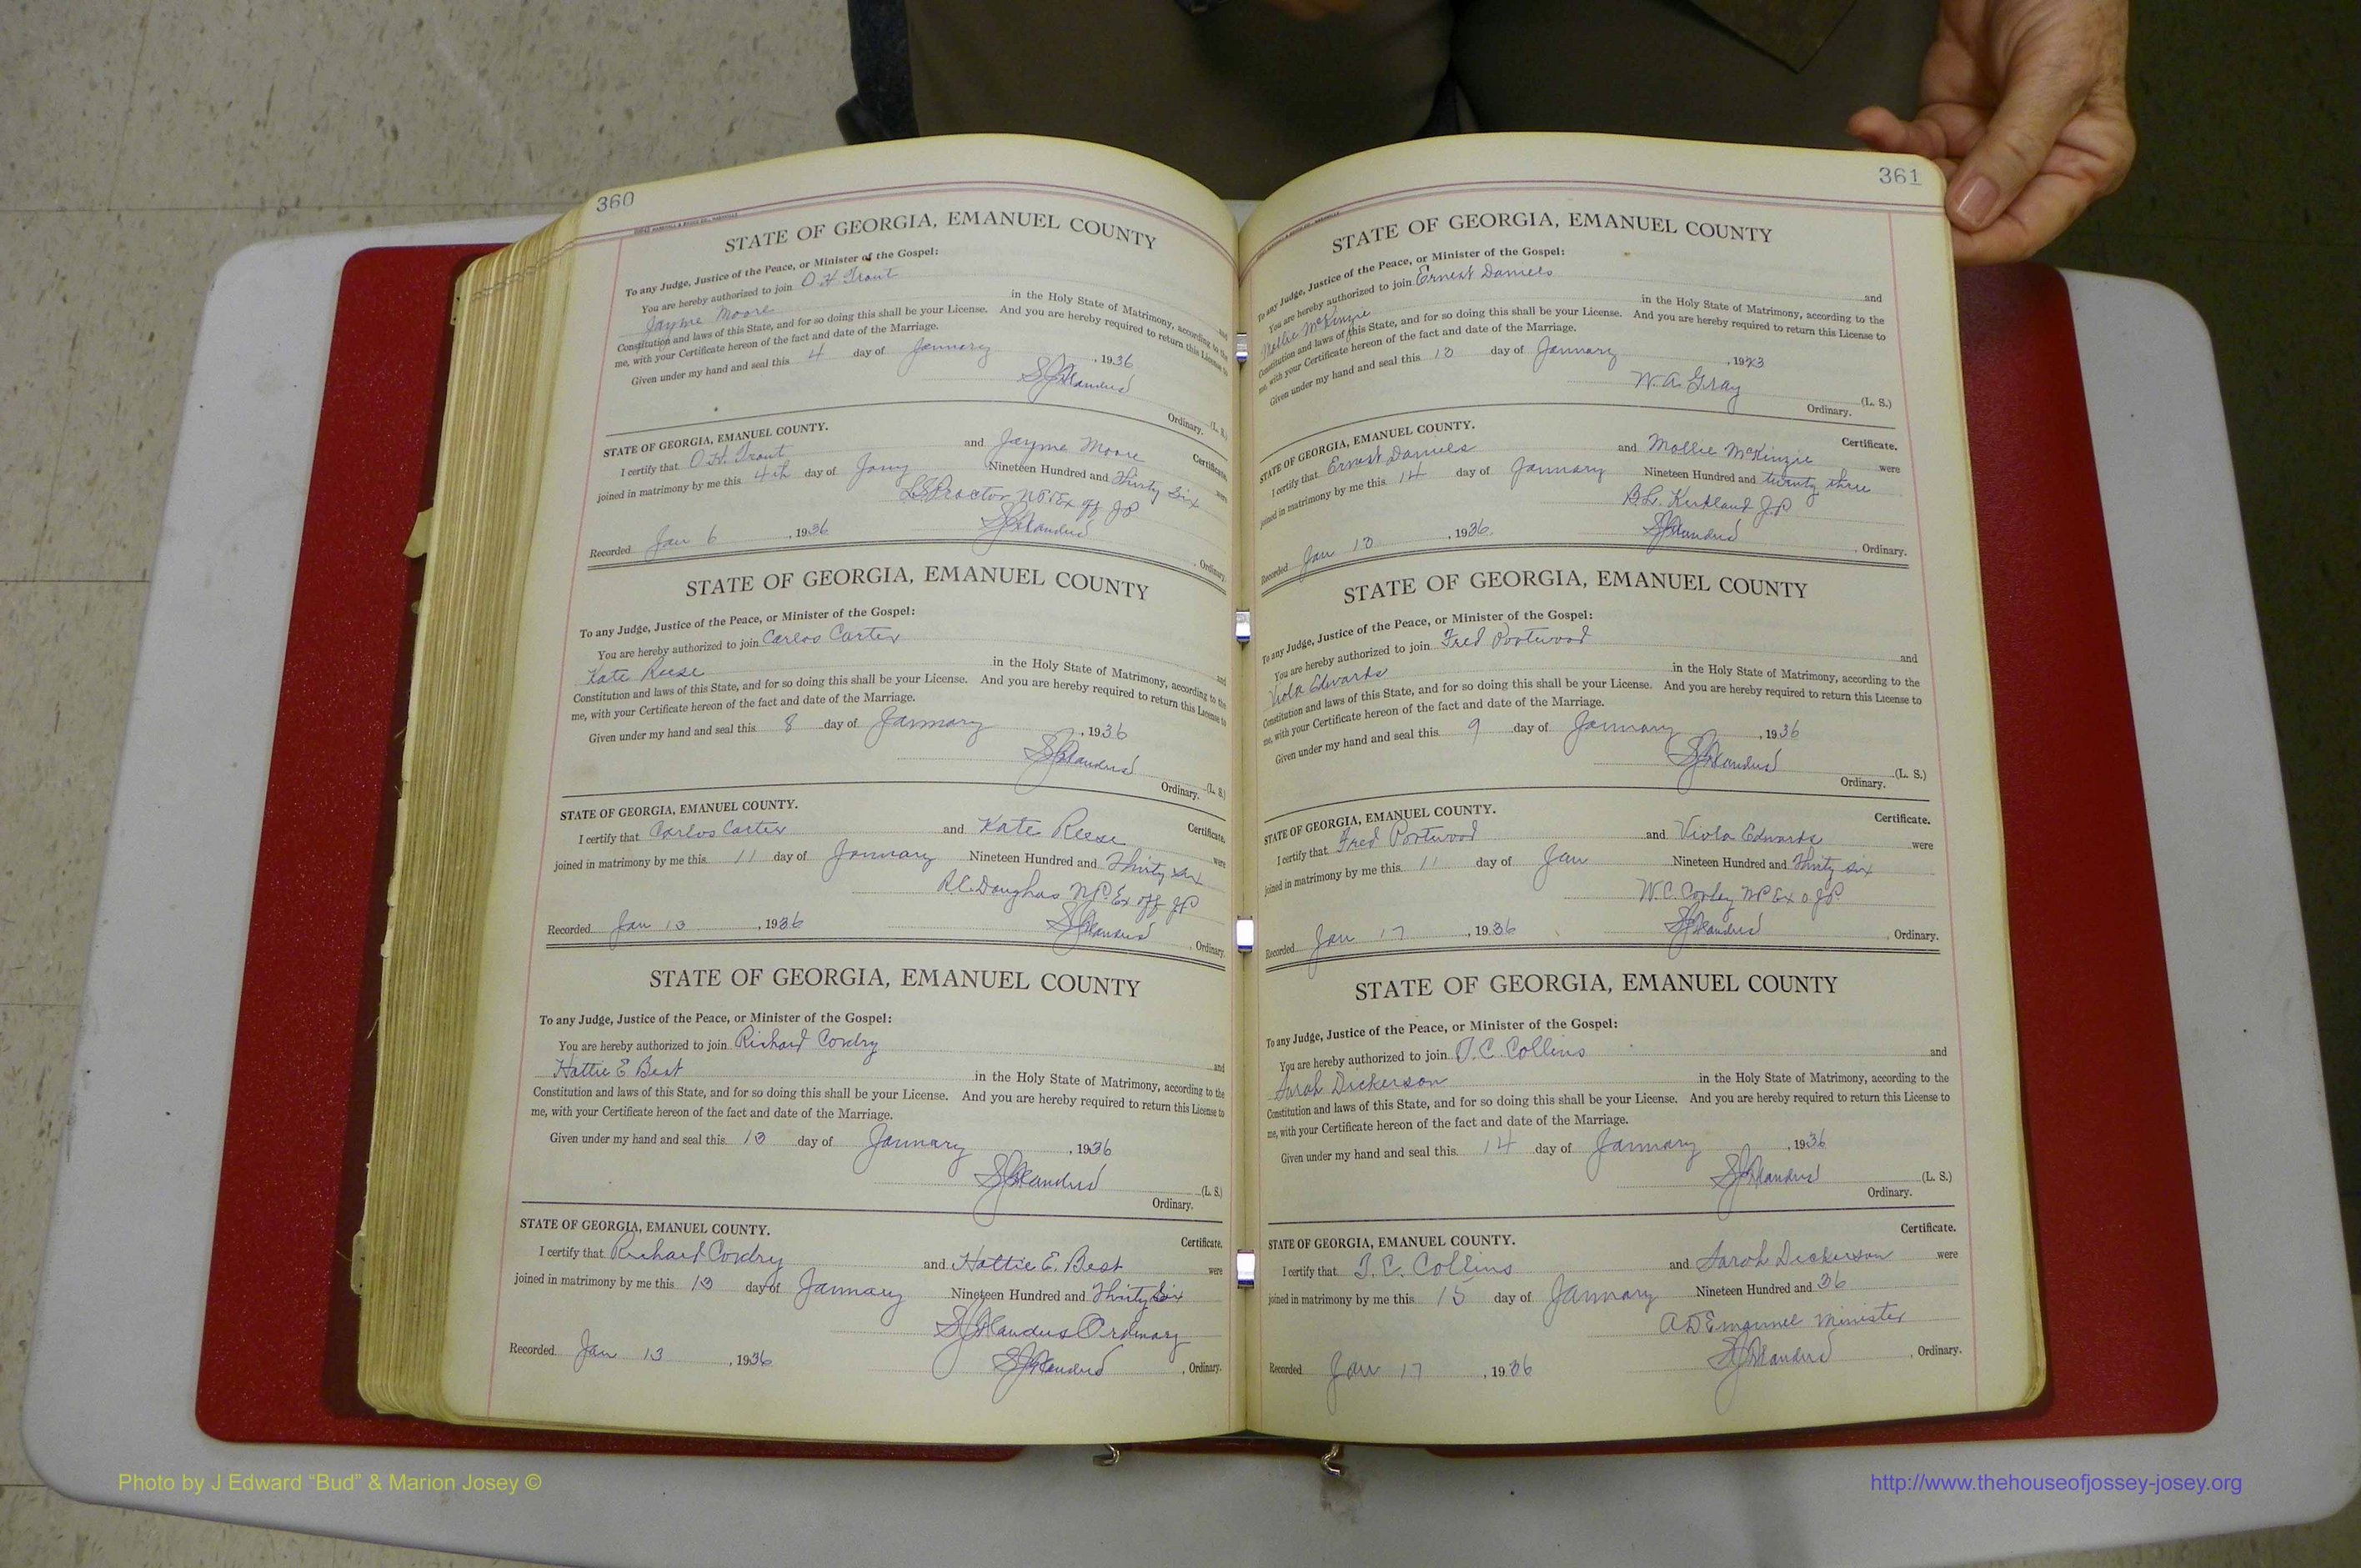 360
STATE OF GEORGIA, EMANUEL COUNTY
To any Judge, Justice of the Peace, or Minister of the Gospel:
You are hereby authorized to join O H Trout and
Jayme Moore in the Holy State of Matrimony, according to the
Constitution and laws of this State, and for so doing this shall be your License. And you are hereby required to return this License to
me, with your Certificate hereon of the fact and date of the Marriage.
Given under my hand and seal this 4 day of January, 1936
(L. S.)
Ordinary.
STATE OF GEORGIA, EMANUEL COUNTY.
Certificate.
I certify that O.H. Trout and Jayme Moore were
joined in matrimony by me this 4th day of Jany Nineteen Hundred and Thirty Six
Proctor NP & Ex off JP
Recorded Jan 6, 1936, Ordinary.
STATE OF GEORGIA, EMANUEL COUNTY
To any Judge, Justice of the Peace, or Minister of the Gospel:
You are hereby authorized to join Carlos Carter and
Kate Reese in the Holy State of Matrimony, according to the
Constitution and laws of this State, and for so doing this shall be your License. And you are hereby required to return this License to
me, with your Certificate hereon of the fact and date of the Marriage.
Given under my hand and seal this 8 day of January, 1936
(L. S.)
Ordinary.
STATE OF GEORGIA, EMANUEL COUNTY.
Certificate.
I certify that Carlos Carter and Kate Reese were
joined in matrimony by me this 11 day of January Nineteen Hundred and Thirty six
Douglas NP & Ex off JP
Recorded Jan 13, 1936, Ordinary.
STATE OF GEORGIA, EMANUEL COUNTY
To any Judge, Justice of the Peace, or Minister of the Gospel:
You are hereby authorized to join Richard Cowdry and
Hattie E. Best in the Holy State of Matrimony, according to the
Constitution and laws of this State, and for so doing this shall be your License. And you are hereby required to return this License to
me, with your Certificate hereon of the fact and date of the Marriage.
Given under my hand and seal this 13 day of January, 1936
(L. S.)
Ordinary.
STATE OF GEORGIA, EMANUEL COUNTY.
Certificate.
I certify that Richard Cowdry and Hattie E. Best were
joined in matrimony by me this 13 day of January Nineteen Hundred and Thirty Six
Ordinary
Recorded Jan 13, 1936, Ordinary.
361
STATE OF GEORGIA, EMANUEL COUNTY
To any Judge, Justice of the Peace, or Minister of the Gospel:
You are hereby authorized to join Ernest Daniels and
Mollie McKinzie in the Holy State of Matrimony, according to the
Constitution and laws of this State, and for so doing this shall be your License. And you are hereby required to return this License to
me, with your Certificate hereon of the fact and date of the Marriage.
Given under my hand and seal this 13 day of January, 1923
W. A. Gray (L. S.)
Ordinary.
STATE OF GEORGIA, EMANUEL COUNTY.
Certificate.
I certify that Ernest Daniels and Mollie McKinzie were
joined in matrimony by me this 14 day of January Nineteen Hundred and twenty three
B.L. Kirkland J.P
Recorded Jan 13, 1936., Ordinary.
STATE OF GEORGIA, EMANUEL COUNTY
To any Judge, Justice of the Peace, or Minister of the Gospel:
You are hereby authorized to join Fred Portwood and
Viola Edwards in the Holy State of Matrimony, according to the
Constitution and laws of this State, and for so doing this shall be your License. And you are hereby required to return this License to
me, with your Certificate hereon of the fact and date of the Marriage.
Given under my hand and seal this 9 day of January, 1936
(L. S.)
Ordinary.
STATE OF GEORGIA, EMANUEL COUNTY.
Certificate.
I certify that Fred Portwood and Viola Edwards were
joined in matrimony by me this 11 day of Jan Nineteen Hundred and Thirty six
W.C. Corley NP Ex o JP
Recorded Jan 17, 1936, Ordinary.
STATE OF GEORGIA, EMANUEL COUNTY
To any Judge, Justice of the Peace, or Minister of the Gospel:
You are hereby authorized to join T. C. Collins and
Sarah Dickerson in the Holy State of Matrimony, according to the
Constitution and laws of this State, and for so doing this shall be your License. And you are hereby required to return this License to
me, with your Certificate hereon of the fact and date of the Marriage.
Given under my hand and seal this 14 day of January, 1936
(L. S.)
Ordinary.
STATE OF GEORGIA, EMANUEL COUNTY.
Certificate.
I certify that T. C. Collins and Sarah Dickerson were
joined in matrimony by me this 15 day of January Nineteen Hundred and 36
A D Emanuel Minister
Recorded Jan 17, 1936, Ordinary.
Photo by J Edward “Bud” & Marion Josey ©
http://www.thehouseofjossey-josey.org